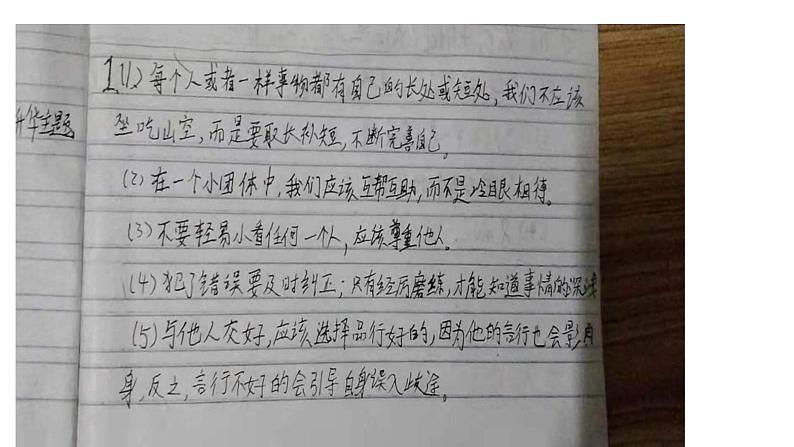 升华主题
1(1)每个人或者一样事物都有自己的长处或短处,我们不应该
坐吃山空,而是要取长补短,不断完善自己。
(2)在一个小团体中,我们应该互帮互助,而不是冷眼相待。
(3)不要轻易小看任何一个人,应该尊重他人。
(4)犯了错误要及时纠正;只有经历磨练,才能知道事情的深浅
(5)与他人交好,应该选择品行好的,因为他的言行也会影响
身,反之,言行不好的会引导自身误入歧途。